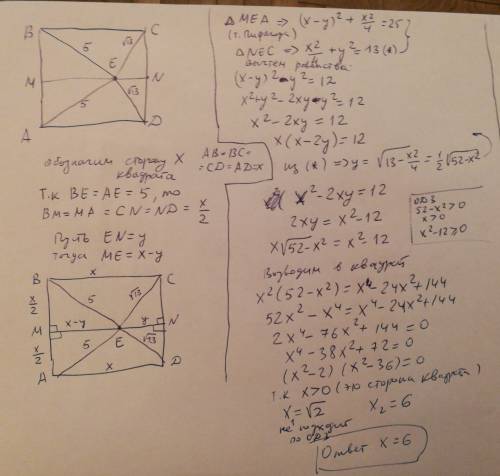 B
C
5
√13
M
E
N
5
√13
A
D
обозначим сторону X
квадрата
AB=BC=
=CD=AD=x
Т.к BE=AE=5, то
BM=MA=CN=ND=x/2
Пусть EN=y
тогда ME=x-y
B
x
C
x/2
5
√13
M
x-y
y
N
E
x/2
5
√13
A
x
D
△MEA => (x-y)²+x²/4=25
(т. Пифагора)
△NEC => x²/4+y²=13(*)
вычтем равенства:
(x-y)²-y²=12
x²+y²-2xy-y²=12
x²-2xy=12
x(x-2y)=12
из (*) => y=√13-x²/4=1/2√52-x²
x²-2xy=12
2xy=x²-12
x√52-x²=x²-12
ОДЗ
52-x²>0
x>0
x²-12≥0
Возводим в квадрат
x²(52-x²)=x⁴-24x²+144
52x²-x⁴=x⁴-24x²+144
2x⁴-76x²+144=0
x⁴-38x²+72=0
(x²-2)(x²-36)=0
т.к x>0 (это сторона квадрата)
x=√2
x₂=6
не подходит
по ОДЗ
Ответ x=6